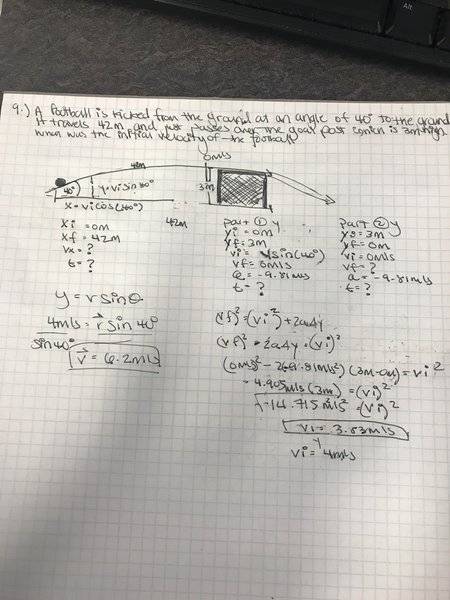 Alt
9.) A football is kicked from the ground at an angle of 40° to the ground
It travels 42m and just passes over the goal post which is 3m high
when was the initial velocity of the football
42m
0m/s
40°
y=visin40°
3m
x=vicos(40°)
42m
xi = 0m
xf = 42m
vx = ?
t = ?
part ① y
yi = 0m
yf = 3m
vi = vsin(40°)
vf = 0m/s
a = -9.81m/s
t = ?
part ② y
yi = 3m
yf = 0m
vi = 0m/s
vf = ?
a = -9.81m/s
t = ?
y = r sinθ
4m/s = r⃗ sin 40°
sin40°
v⃗ = 6.2m/s
(vf)² = (vi²) + 2aΔy
(vf)² - 2aΔy = (vi)²
(3m-0m) = vi²
(3m) = (vi)²
-14.715m²/s² = (vi)²
vi = 3.83m/s
y
vi = 4m/s